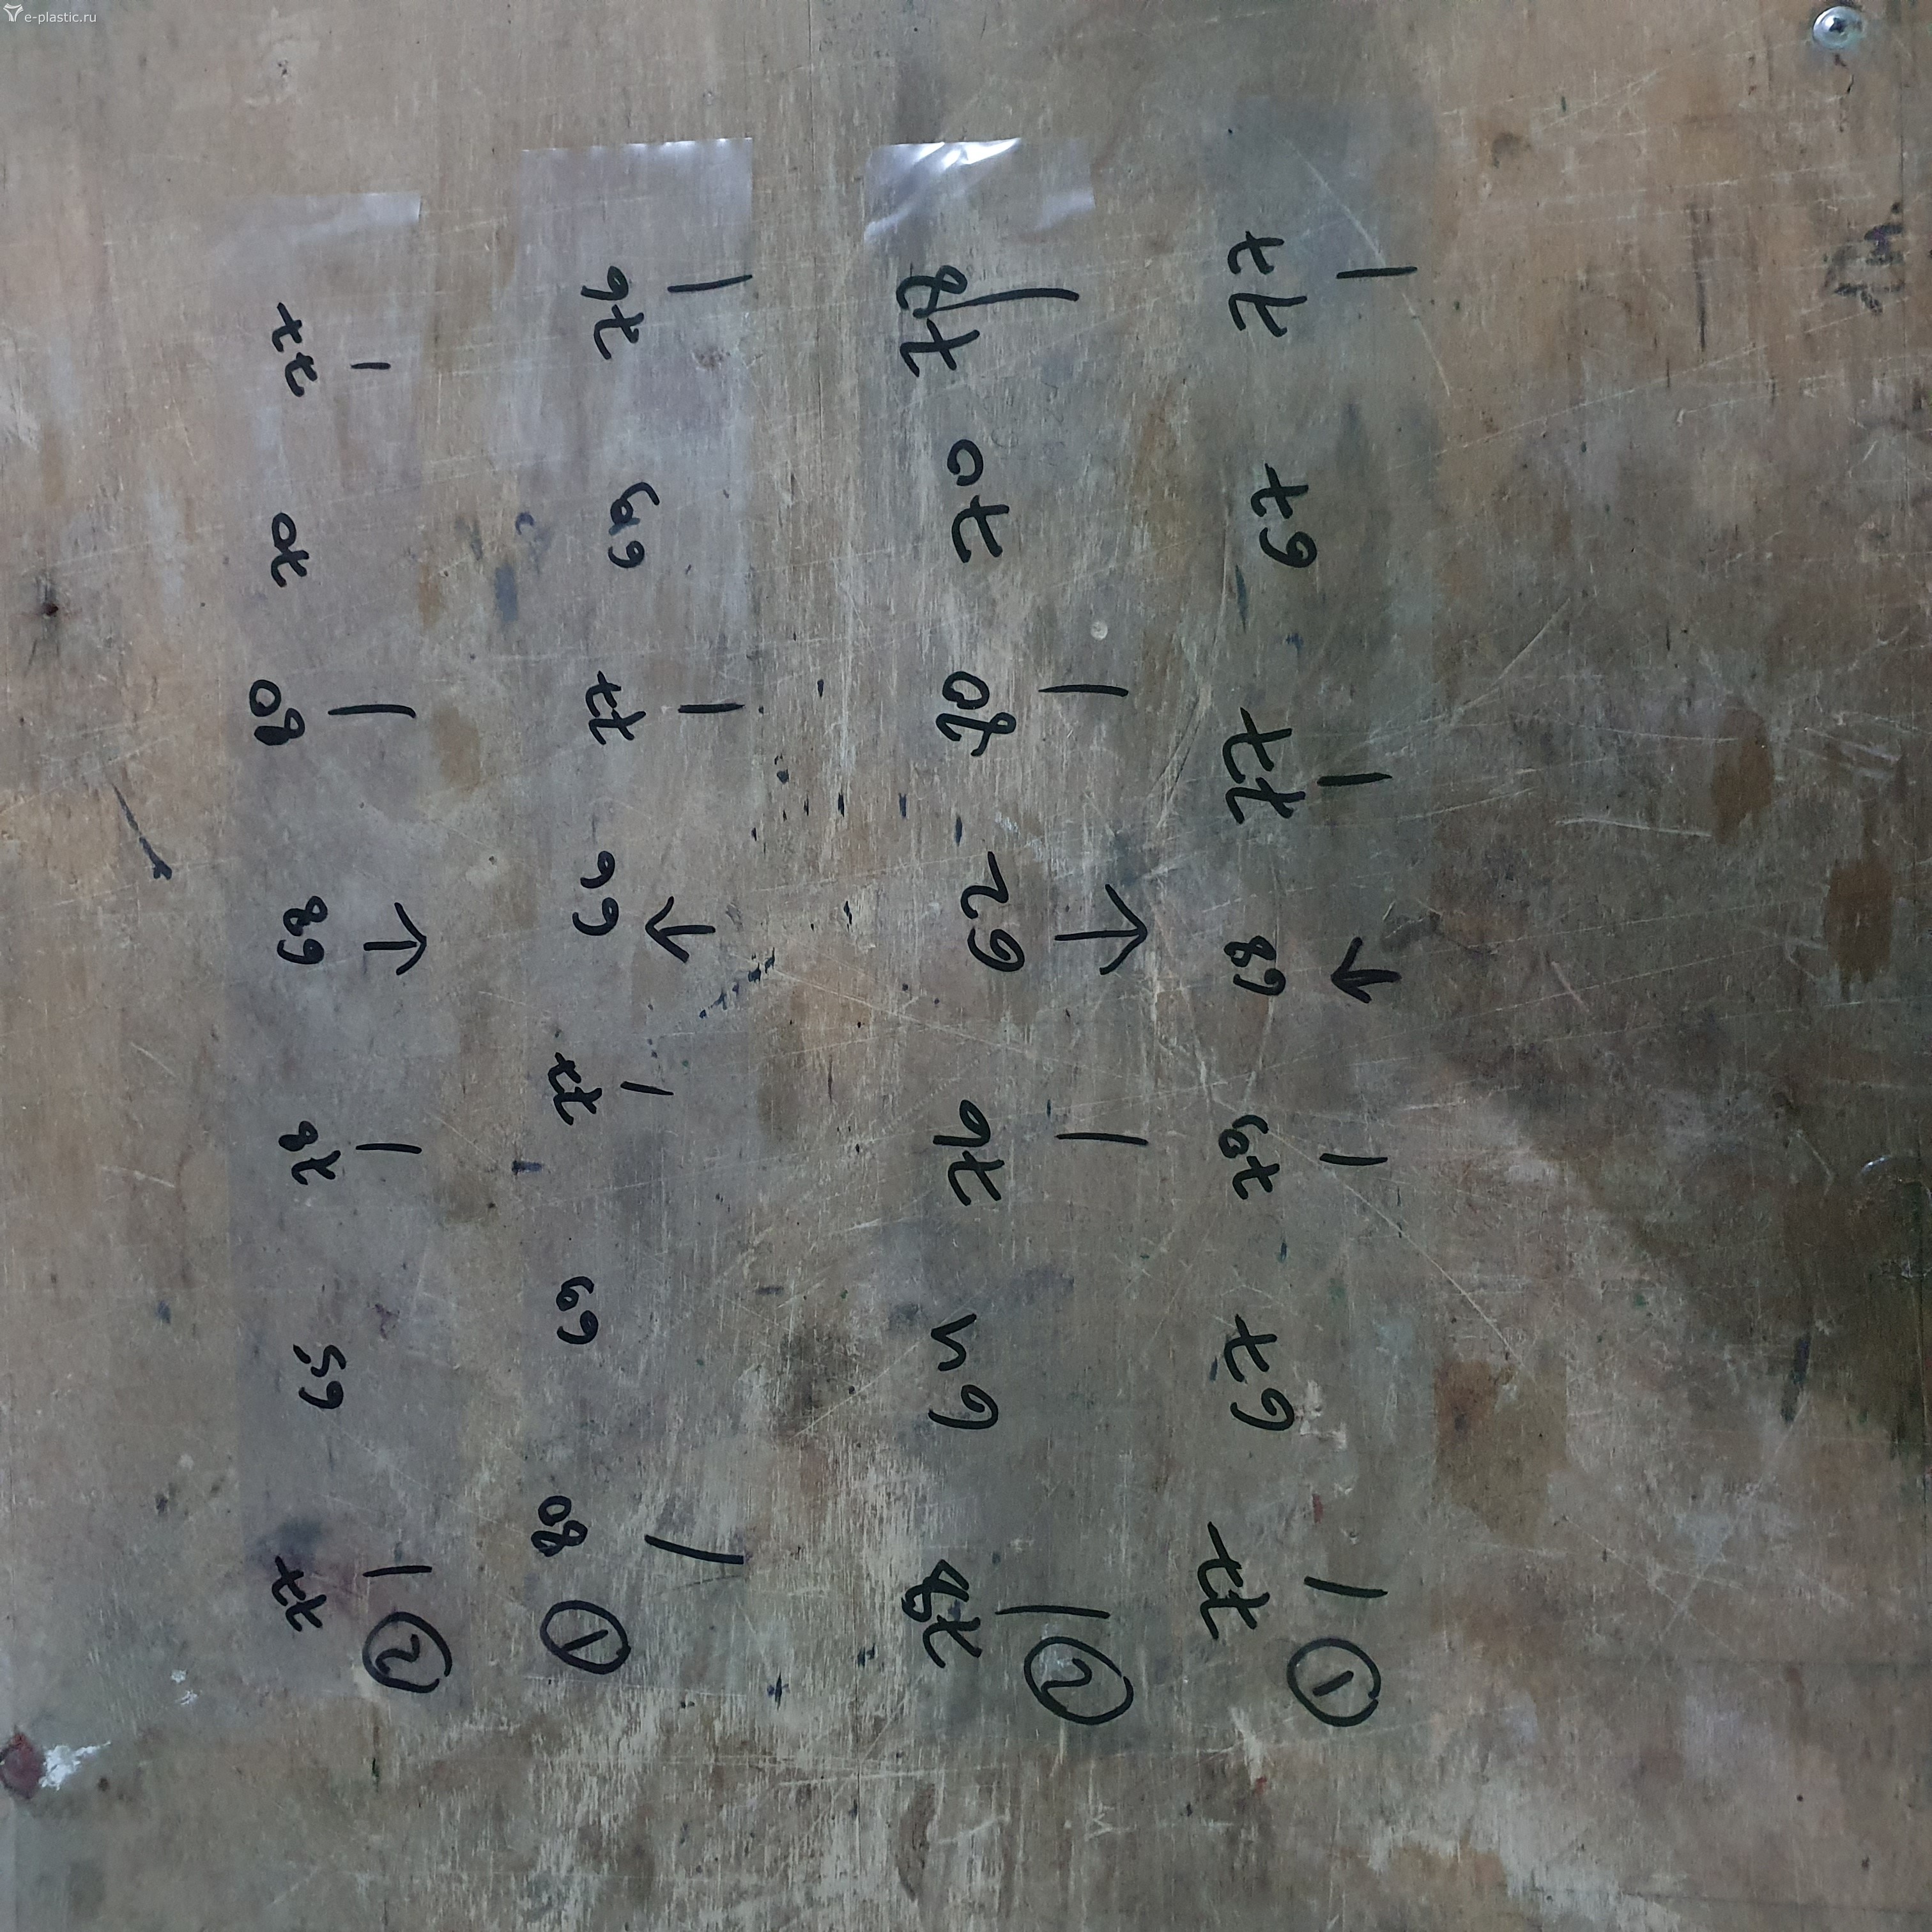 77 65 78 68 80 70 77
2
1 80 69 77 66 77 69 76
78 64 76 62 70 70 78
2
77 67 79 68 77 67 77
1
e-plastic.ru